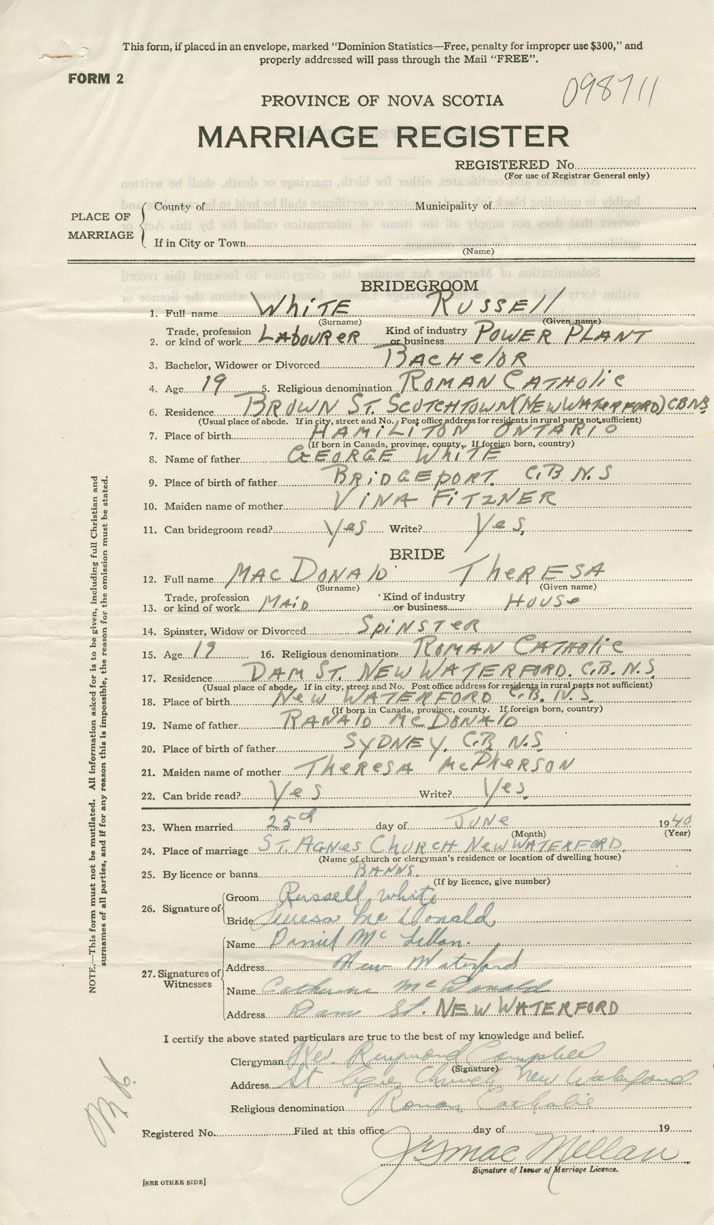 This form, if placed in an envelope, marked "Dominion Statistics—Free, penalty for improper use $300," and
properly addressed will pass through the Mail "FREE".
FORM 2
098711
PROVINCE OF NOVA SCOTIA
MARRIAGE REGISTER
REGISTERED No.
(For use of Registrar General only)
PLACE OF MARRIAGE
County of Municipality of
If in City or Town
(Name)
BRIDEGROOM
1. Full name White Russell
(Surname) (Given name)
2. Trade, profession or kind of work Labourer Kind of industry or business Power Plant
3. Bachelor, Widower or Divorced Bachelor
4. Age 19 5. Religious denomination Roman Catholic
6. Residence Brown St. Scotchtown (New Waterford) C.B.N.S
(Usual place of abode. If in city, street and No. Post office address for residents in rural parts not sufficient)
7. Place of birth Hamiliton Ontario
(If born in Canada, province, county. If foreign born, country)
8. Name of father George White
9. Place of birth of father Bridgeport. C.B N.S
10. Maiden name of mother Vina Fitzner
11. Can bridegroom read? Yes Write? Yes.
BRIDE
12. Full name MacDonald Theresa
(Surname) (Given name)
13. Trade, profession or kind of work Maid Kind of industry or business House
14. Spinster, Widow or Divorced Spinster
15. Age 19 16. Religious denomination Roman Catholic
17. Residence Dam St. New Waterford. C.B. N.S.
(Usual place of abode. If in city, street and No. Post office address for residents in rural parts not sufficient)
18. Place of birth New Waterford C.B. N.S.
(If born in Canada, province, county. If foreign born, country)
19. Name of father Ranald McDonald
20. Place of birth of father Sydney, C.B N.S
21. Maiden name of mother Theresa McPherson
22. Can bride read? Yes Write? Yes.
23. When married 25th day of June 1940
(Month) (Year)
24. Place of marriage St. Agnes Church New Waterford
(Name of church or clergyman's residence or location of dwelling house)
25. By licence or banns Banns
(If by licence, give number)
26. Signature of
Groom Russell White
Bride Teresa Mc Donald
27. Signatures of Witnesses
Name Daniel Mc Lellan.
Address New Waterford
Name Catherine McDonald
Address Dam St. New Waterford
I certify the above stated particulars are true to the best of my knowledge and belief.
Clergyman Rev. Raymond Campbell
(Signature)
Address St Agnes Church, New Waterford
Religious denomination Roman Catholic
Registered No. Filed at this office day of 19
Signature of Issuer of Marriage Licence.
[SEE OTHER SIDE]
NOTE.—This form must not be mutilated. All information asked for is to be given, including full Christian and
surnames of all parties, and if for any reason this is impossible, the reason for the omission must be stated.